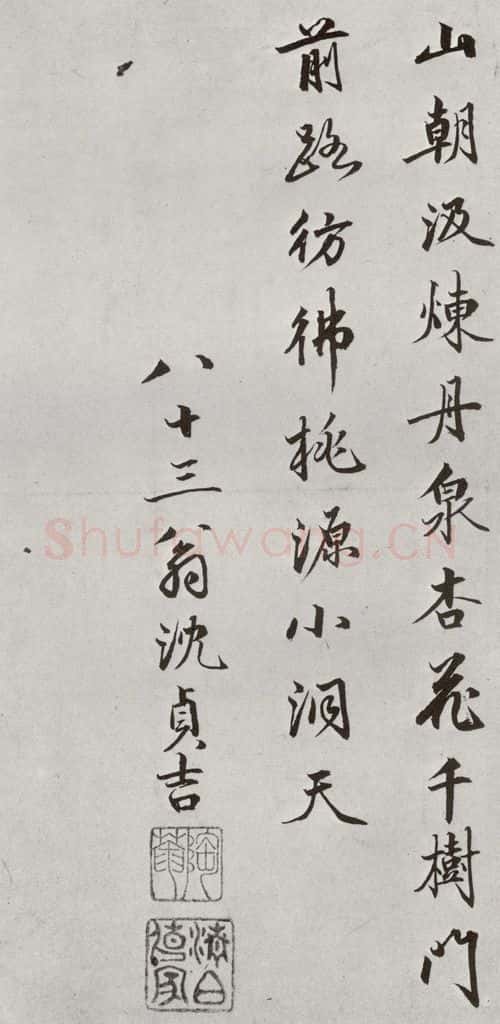 山朝汲煉丹泉杏花千樹門
前路彷彿桃源小洞天
八十三翁沈貞吉
Shufawang.CN